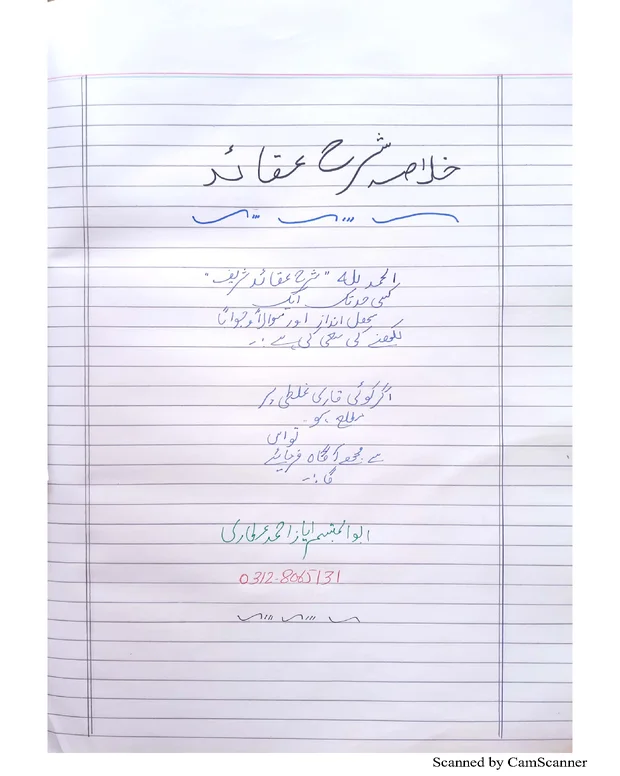 خلاصہ شرح عقائد
الحمد للہ "شرح عقائد شریف"
کسی حد تک ایک
سھل انداز اور سوالاً و جواباً
لکھنے کی سعی کی ہے :۔
اگر کوئی قاری غلطی پر
مطلع ہو۔
تو اس
سے مجھے آگاہ فرمائے
گا :۔
ابو المبتسم ایاز احمد عطاری
0312-8065131
Scanned by CamScanner